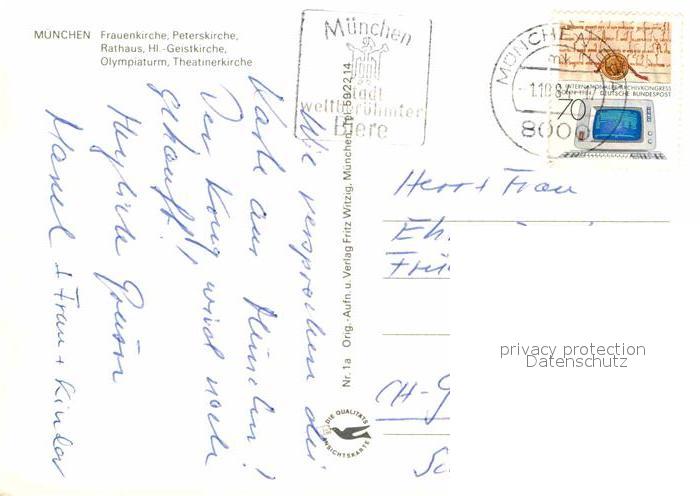 MÜNCHEN Frauenkirche, Peterskirche,
Rathaus, Hl.-Geistkirche,
Olympiaturm, Theatinerkirche
München
Stadt
weltberühmter
Biere
MÜNCHEN
1.10.8
800
X. INTERNATIONALER ARCHIVKONGRESS
BONN 1984 DEUTSCHE BUNDESPOST
70
Wie versprochen die
Karte aus München!
Der König wird noch
gekauft!
Herzliche Grüße
Hansel + Frau + Kinder
Nr. 1a Orig.-Aufn. u. Verlag Fritz Witzig, München, Tel. 59 22 14
DIE QUALITÄTS
ANSICHTSKARTE
Herr + Frau
Eh
CH-G
privacy protection
Datenschutz